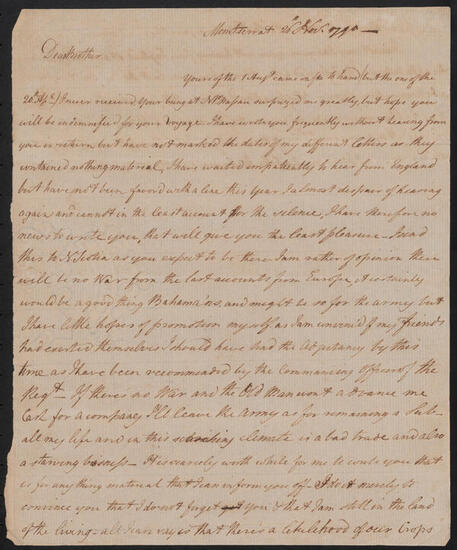 Montserrat 26 Novr. 1790 —
Dear Brother
Yours of the 1 Augt. came safe to hand but the one of the
20th I never received Your being at Nt. Nassau surprized me greatly, but hope you
will be indemnified for your Voyage. I have wrote you frequently without hearing from
you in return but have not marked the dates of my different Letters as they
contained nothing material, I have waited impatiently to hear from England
but have not been favord with a line this Year I almost despair of hearing
again and cannot in the least account for the silence, I have therefore no
news to write you, that will give you the least pleasure I send
this to N. Scotia as you expect to be there I am rather of opinion there
will be no War from the last accounts from Europe, it certainly
would be a good thing Bahama and might be so for the army but
I have little hopes of promotion myself as I am if my friends
had exerted themselves I should have had the Adjutancy by this
time as I have been recommended by the Commanding Officer of the
Regt. If there's no War and the Old Man wont advance me
Cash for a company I'll leave the Army as for remaining a Sub-
all my life and in this scorching climate is a bad trade and also
a starving business — It is scarcely worth while for me to write you that
is for any thing material that I can inform you of merely to
convince you that I do not forget you & that I am still in the land
of the living — all I can say is that there's a likelihood of our Crops